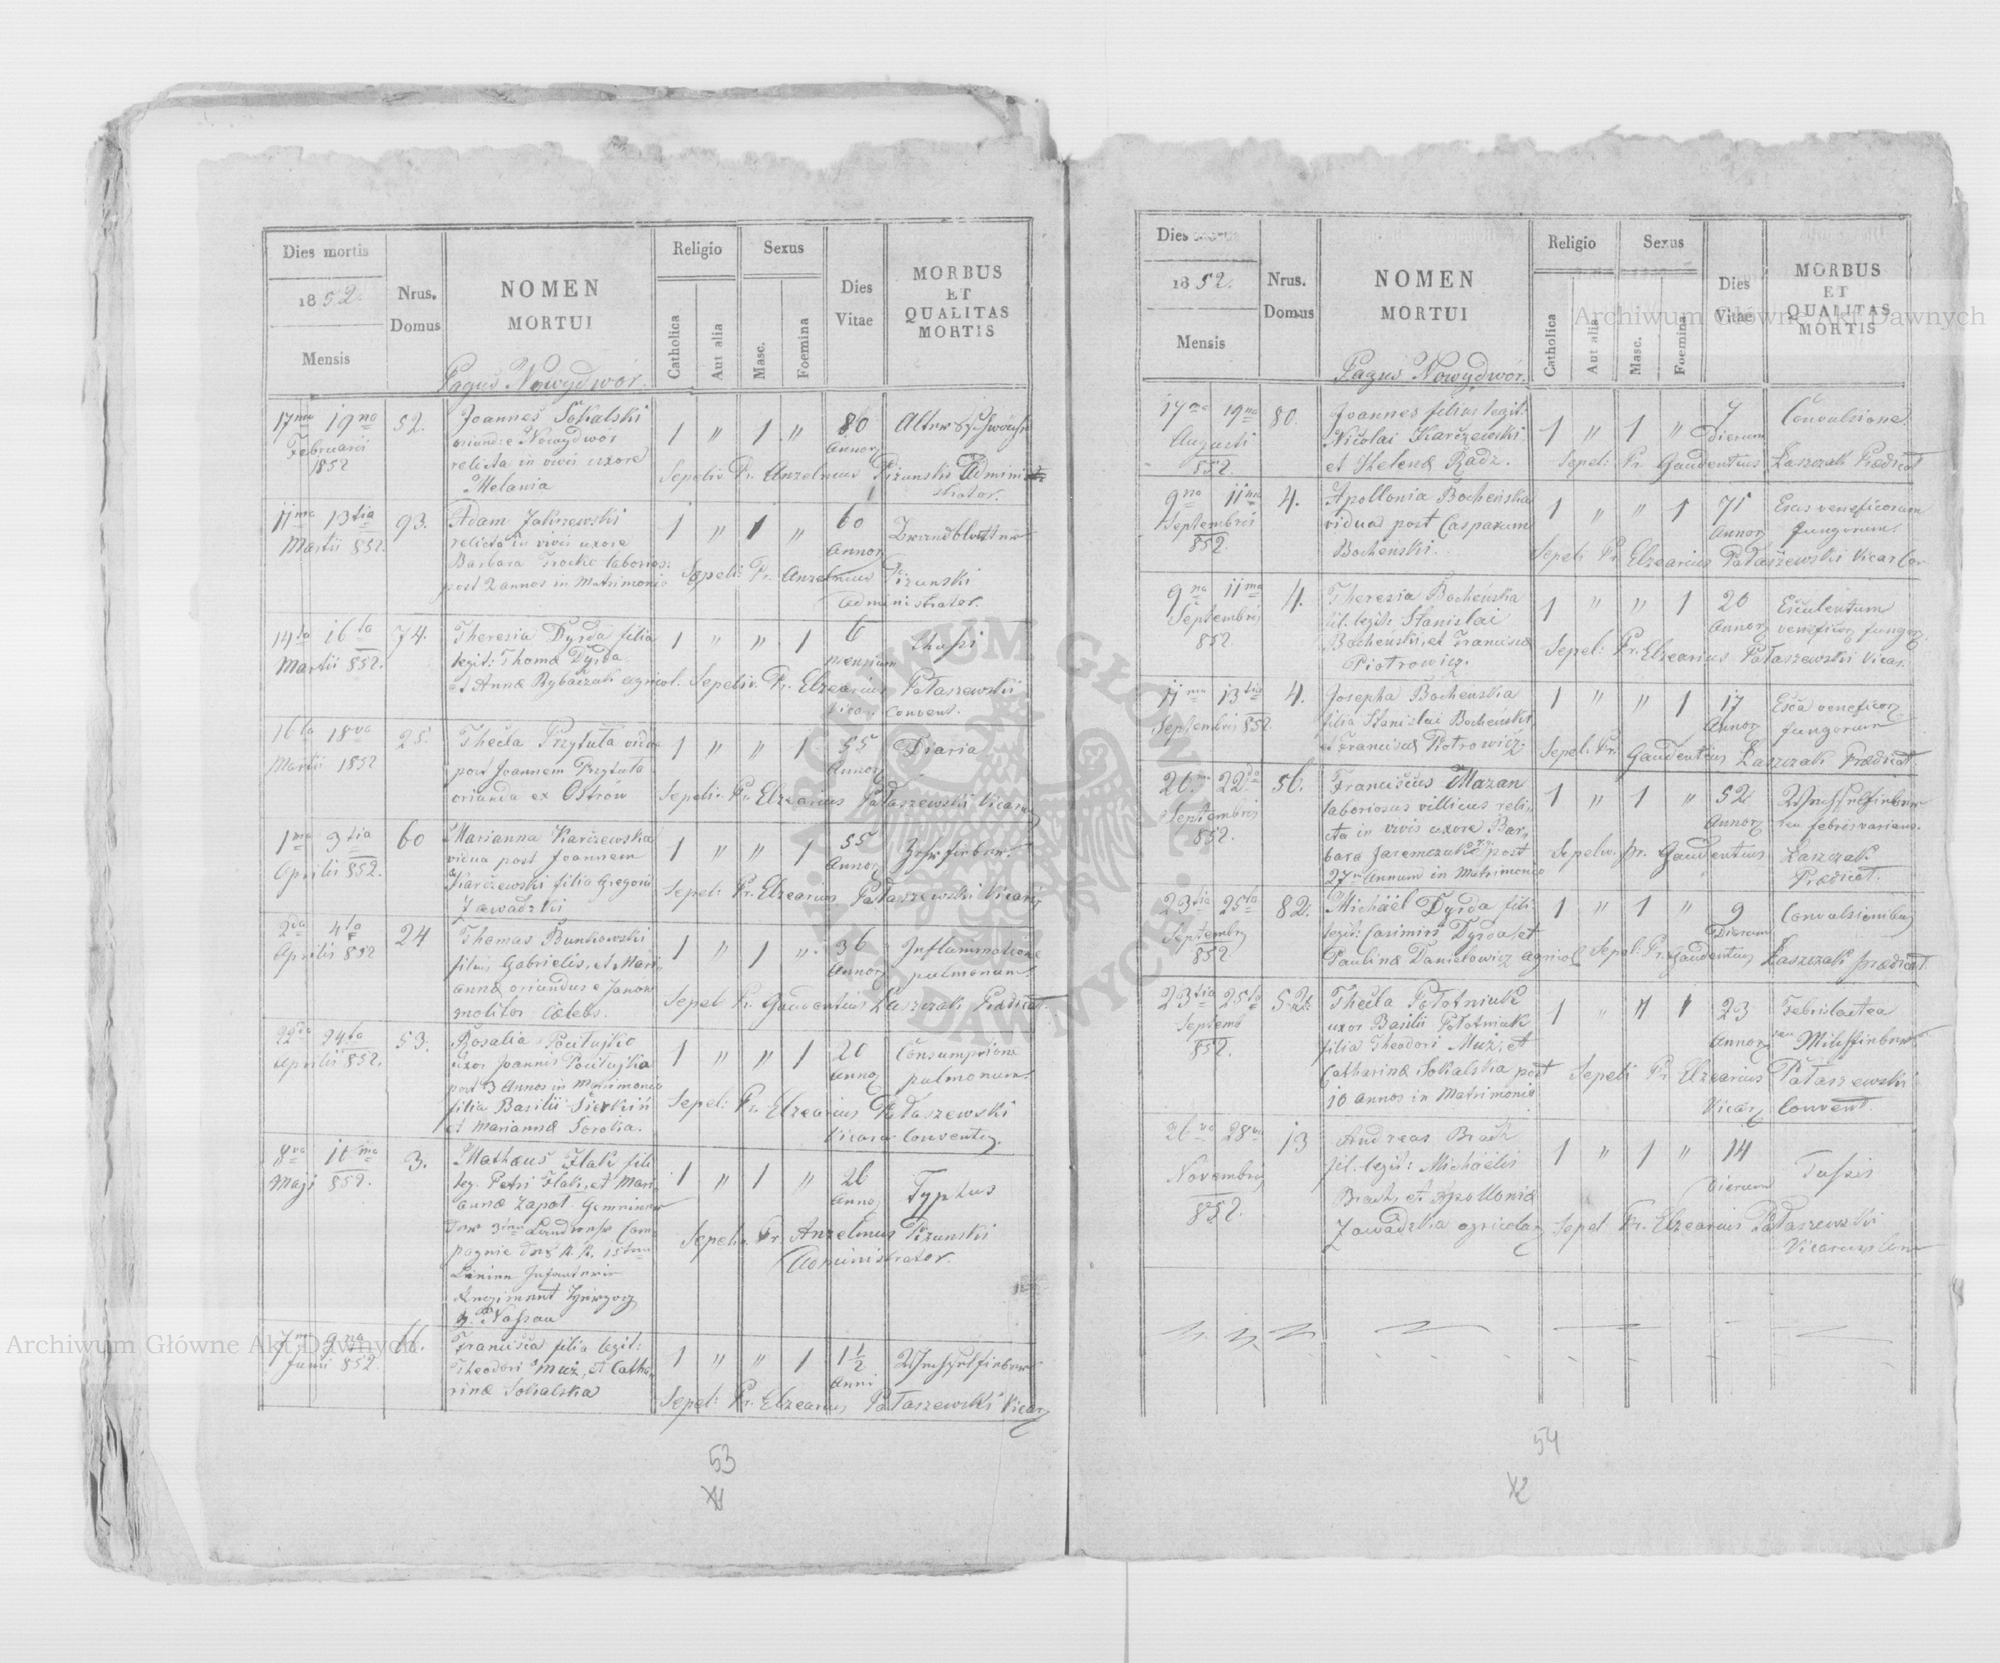 Dies mortis
1852.
Mensis
Nrus.
Domus
NOMEN
MORTUI
Pagus Nowydwór.
Religio
Catholica
Aut alia
Sexus
Masc.
Foemina
Dies
Vitae
MORBUS
ET
QUALITAS
MORTIS
17ma 19na
Februarii
1852
52.
Joannes Sokalski
oriundae Nowydwór
relicta in vivis uxore
Melania
1 " 1 "
80
Annor
Sepeliv. Pr. Anzelmus Piżunski Admini
strator.
11ma 13tia
Martii 852.
93.
Adam Zaliszewski
relicta in vivis uxore
Barbara Trocke laborios:
post 2 annos in Matrimonio
1 " 1 "
60
Annor
Sepeli: Pr. Anzelmus Piżunski
Administrator.
14ta 16ta
Martii 852.
74.
Theresia Dyrda filia
legit: Thomæ Dyrda
et Annæ Rybaczak agricol.
1 " " 1
6
mensium
Sepeliv. Pr. Elzearius Pałaszewski
Vicar Convent.
16ta 18va
Martii 1852
25.
Thecla Przytuła vidua
post Joannem Przytuła
oriunda ex Ostrow
1 " " 1
55
Annor
Diaria
Sepeliv. Pr. Elzearius Pałaszewski Vicar
1ma 3tia
Aprilis 852.
60
Marianna Karczewska
vidua post Joannem
Karczewski filia Gregorii
Zawadzki
1 " " 1
55
Annor
Sepel: Pr. Elzearius Pałaszewski Vicar
2da 4ta
Aprilis 852
24
Thomas Bunkowski
filius Gabrielis, et Mari
annæ oriundus e Janow
molitor Cælebs.
1 " 1 "
36
Annor
Inflammatione
pulmonum.
Sepel Pr. Gaudentius Łaszczak Prædicat.
22da 24ta
Aprilis 852.
53.
Rosalia Pociłujko
uxor Joannis Pociłujka
post 3 Annos in Matrimonio
filia Basilii Sierkiń
et Mariannæ Sorolia.
1 " " 1
20
Anno
Consumptione
pulmonum.
Sepel: Pr. Elzearius Pałaszewski
Vicar Convent.
8va
Maji 852.
3.
Mathæus Hak fili
leg. Petri Hak, et Mari
annæ Łapot
pagnie
Linien Infanterie
Regiment Herzog
v. Nassau
1 " 1 "
26
Anno
Typhus
Sepeli. Pr. Anzelmus Piżunski
Administrator.
7ma 9na
Junii 852.
66.
Francisca filia legit:
Theodori Muż, et Catha
rinæ Sokalska
1 " " 1
1 1/2
Anni
Sepel: Pr. Elzearius Pałaszewski Vicar
53
Dies mortis
1852.
Mensis
Nrus.
Domus
NOMEN
MORTUI
Pagus Nowydwór.
Religio
Catholica
Aut alia
Sexus
Masc.
Foemina
Dies
Vitae
MORBUS
ET
QUALITAS
MORTIS
17ma 19na
Augusti
852.
80.
Joannes filius legit:
Nicolai Karczewski
et Helenæ Radz.
1 " 1 "
7
dierum
Convulsione.
Sepel: Pr. Gaudentius Łaszczak Prædicat
9na 11ma
Septembris
852.
4.
Apollonia Bocheńska
vidua post Casparum
Bochenski.
1 " " 1
71
Annor
Esus veneficorum
fungorum.
Sepel: Pr. Elzearius Pałaszewski Vicar Con
9na 11ma
Septembris
852.
4.
Theresia Bocheńska
fil. legit: Stanislai
Bochenski, et Francisca
Piotrowicz.
1 " " 1
20
Annor
Esculentum
venefico fungor
Sepel: Pr. Elzearius Pałaszewski Vicar.
11ma 13tia
Septembris 852.
4.
Josepha Bochenska
filia Stanislai Bochenski
et Francisca Piotrowicz.
1 " " 1
17
Annor
Esca venefico
fungorum
Sepel: Pr. Gaudentius Łaszczak Prædicat.
20ma 22da
Septembris
852.
56.
Franciscus Mazan
laboriosus villicus reli
cta in vivis uxore Bar
bara Jaremczuk post
27m Annum in Matrimonio
1 " 1 "
52
Annor
seu febris varians.
Sepeliv. Pr. Gaudentius Łaszczak
Prædicat.
23tia 25ta
Septembr
852.
82.
Michäel Dyrda fili
legit: Casimiri Dyrda, et
Paulinæ Danielowicz agricol
1 " 1 "
9
Dierum
Convulsionibus
Sepel: Pr. Gaudentius Łaszczak Prædicat.
23tia 25ta
Septemb
852.
52.
Thecla Połotniuk
uxor Basilii Połotniuk
filia Theodori Muż, et
Catharinæ Sokalska post
10 annos in Matrimonio
1 " " 1
23
Annor
Febris lactea
Sepeli Pr. Elzearius Pałaszewski
Vicar Convent.
26va 28va
Novembris
852.
13
Andreas Brach
fil. legit: Michäelis
Brach, et Apolloniæ
Zawadzka agricola
1 " 1 "
14
Dierum
Tussis
Sepel. Pr. Elzearius Pałaszewski
Vicarius Conv
54
Archiwum Główne Akt Dawnych
Archiwum Główne Akt Dawnych
ARCHIWUM GŁÓWNE AKT DAWNYCH